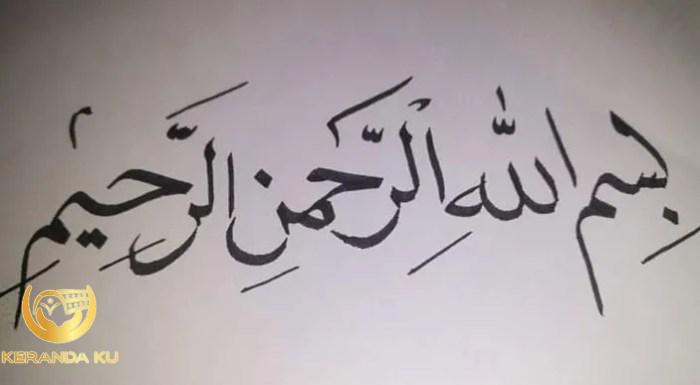 بِسْمِ اللّٰهِ الرَّحْمٰنِ الرَّحِيْمِ
KERANDA KU